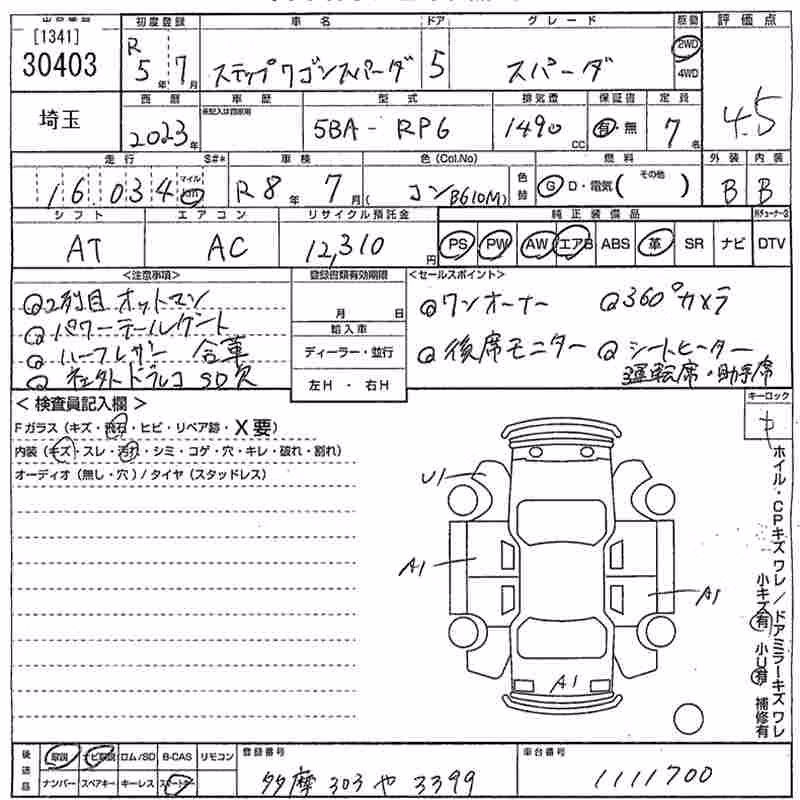 [1341]
30403
埼玉
初度登録 車名 ドア グレード 駆動 評価点
R 5年 7月 ステップワゴンスパーダ 5 スパーダ 2WD 4WD 4.5
西暦 車歴 型式 排気量 保証書 定員
2023年 未記入は自家用 5BA-RP6 1490cc 有・無 7名
走行 S#* 車検 色(Col.No) 色替 燃料 外装 内装
16,034 マイル km R8年 7月 ( コン B610M) G D・電気( その他 ) B B
シフト エアコン リサイクル預託金 純正装備品
AT AC 12,310円 PS PW AW エアB ABS 革 SR ナビ DTV
<注意事項> 登録書類有効期限 <セールスポイント>
Q2列目オットマン 月 日 Qワンオーナー Q360°カメラ
Qパワーテールゲート 輸入車
Qハーフレザー 合革 ディーラー・並行 Q後席モニター Qシートヒーター
Q 社外ドラレコ SD欠 左H・右H 運転席・助手席
<検査員記入欄> キーロック
Fガラス(キズ・飛石・ヒビ・リペア跡・X要)
内装(キズ・スレ・汚れ・シミ・コゲ・穴・キレ・破れ・割れ)
オーディオ(無し・穴)/タイヤ(スタッドレス)
U1
A1
A1
A1
ホイル・CPキズ ワレ/ドアミラーキズ ワレ
小キズ有 小U有 補修有
後送品 取説 ナビ取説 ロム/SD B-CAS リモコン 登録番号 車台番号
ナンバー スペアキー キーレス スマートキー 多摩 303 や 3399 1111700